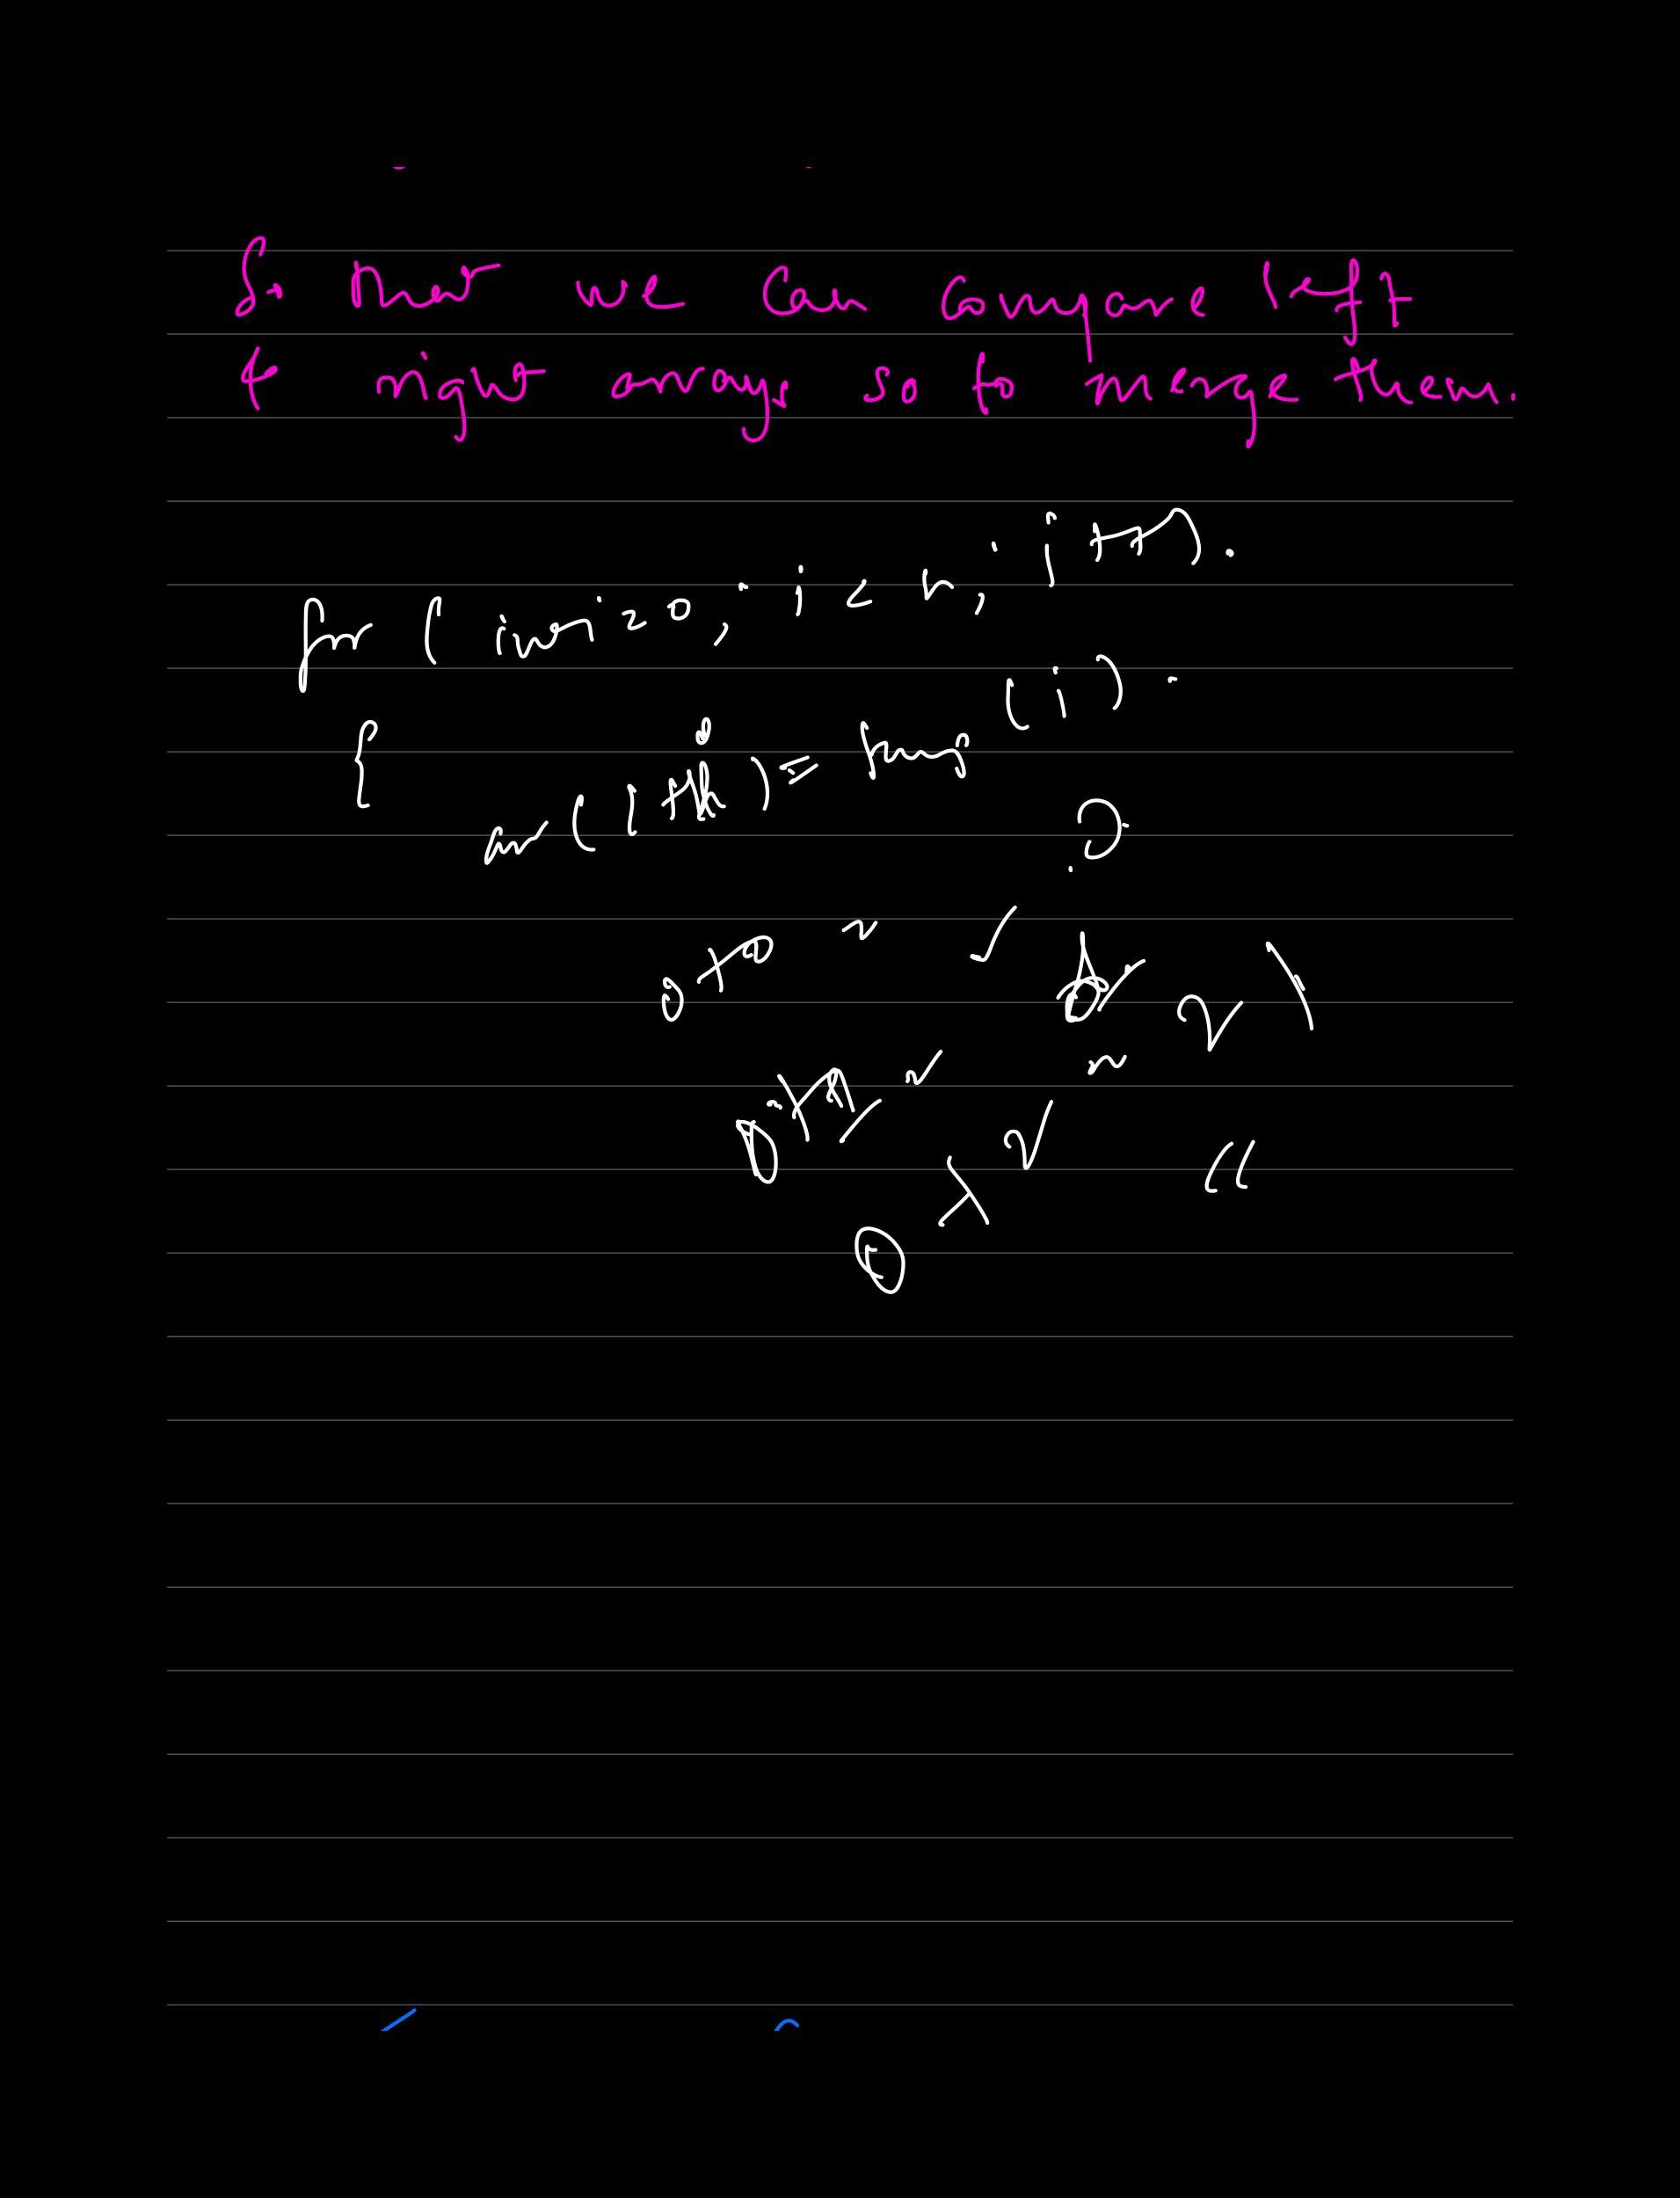 So that we can compare left
& right arrays so to merge them.
for ( int i = 0 ; i < n ; i++).
{
arr ( l + ) = temp (i) .
0 + 0 =
0 + 2 = 2